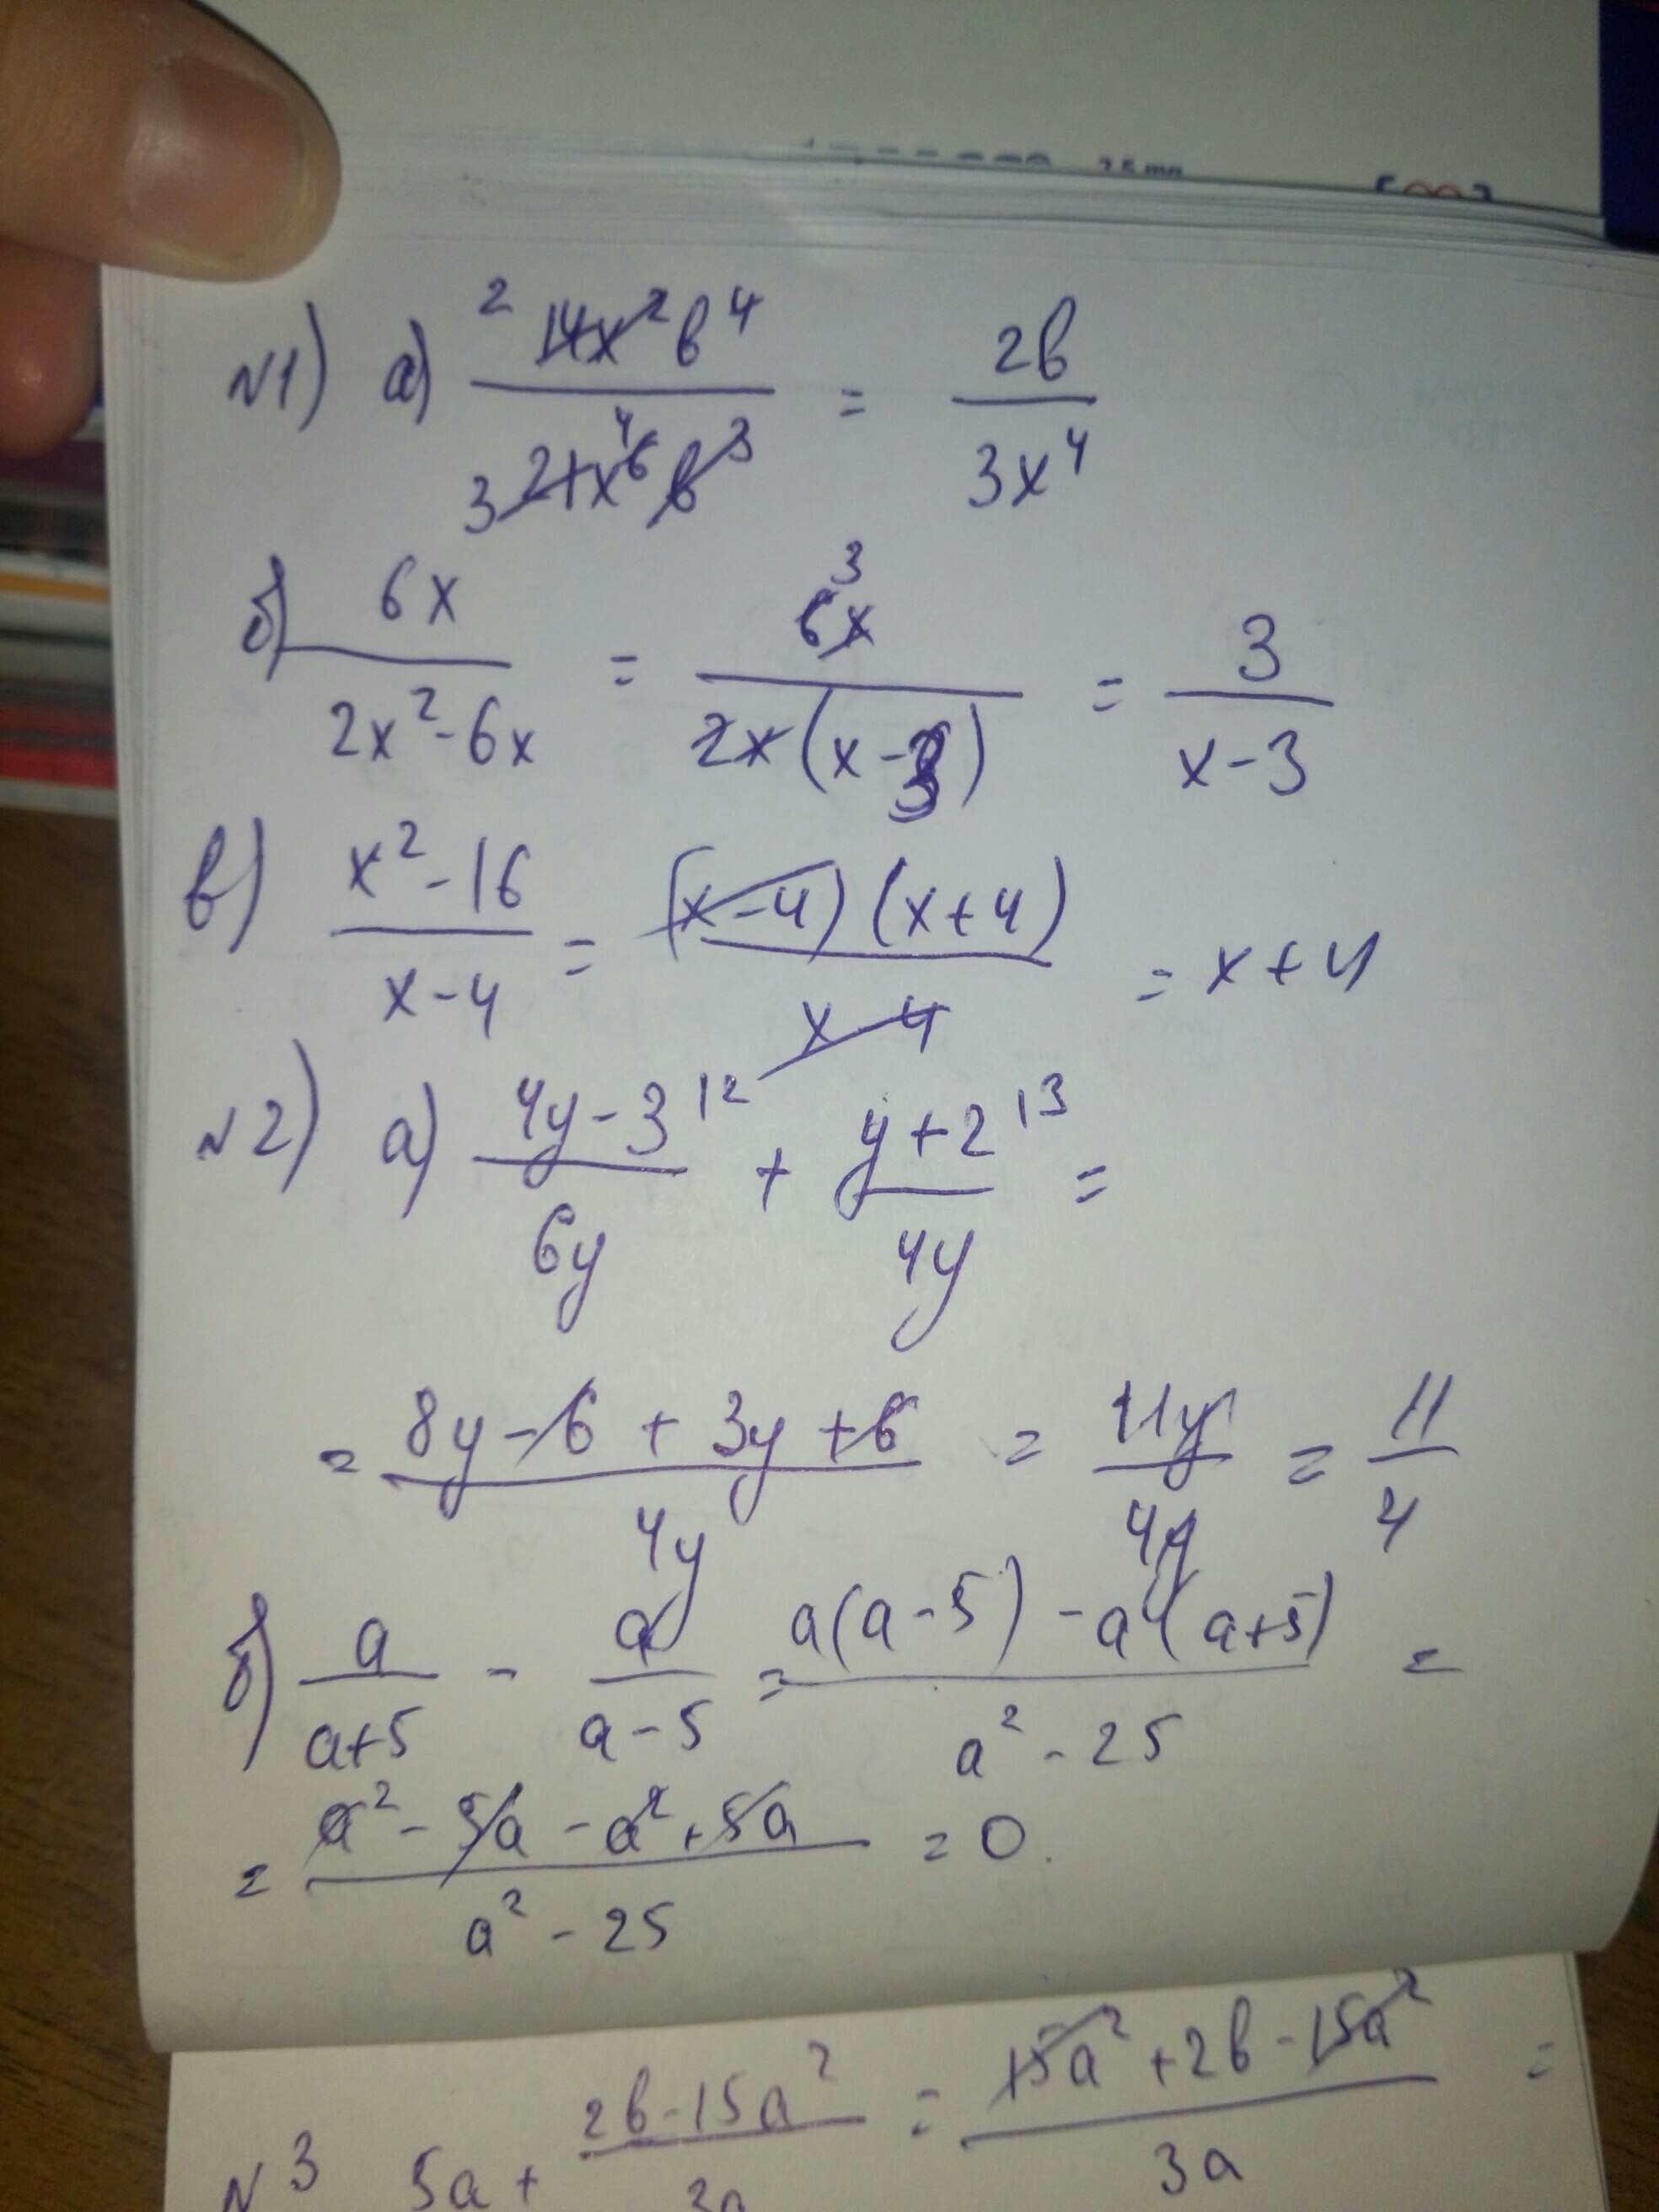 №1) а) 2 14x²b⁴ / 3 21x⁶ ⁴ b³ = 2b / 3x⁴
б) 6x / 2x²-6x = 6x ³ / 2x(x-3) = 3 / x-3
в) x²-16 / x-4 = (x-4)(x+4) / x-4 = x+4
№2) а) 4y-3 |2 / 6y + y+2 |3 / 4y =
= 8y-6+3y+6 / 4y = 11y / 4y = 11 / 4
б) a / a+5 - a / a-5 = a(a-5)-a(a+5) / a²-25 =
= a²-5a-a²+5a / a²-25 = 0.
№3 5a + 2b-15a² / 3a = 15a²+2b-15a² / 3a =